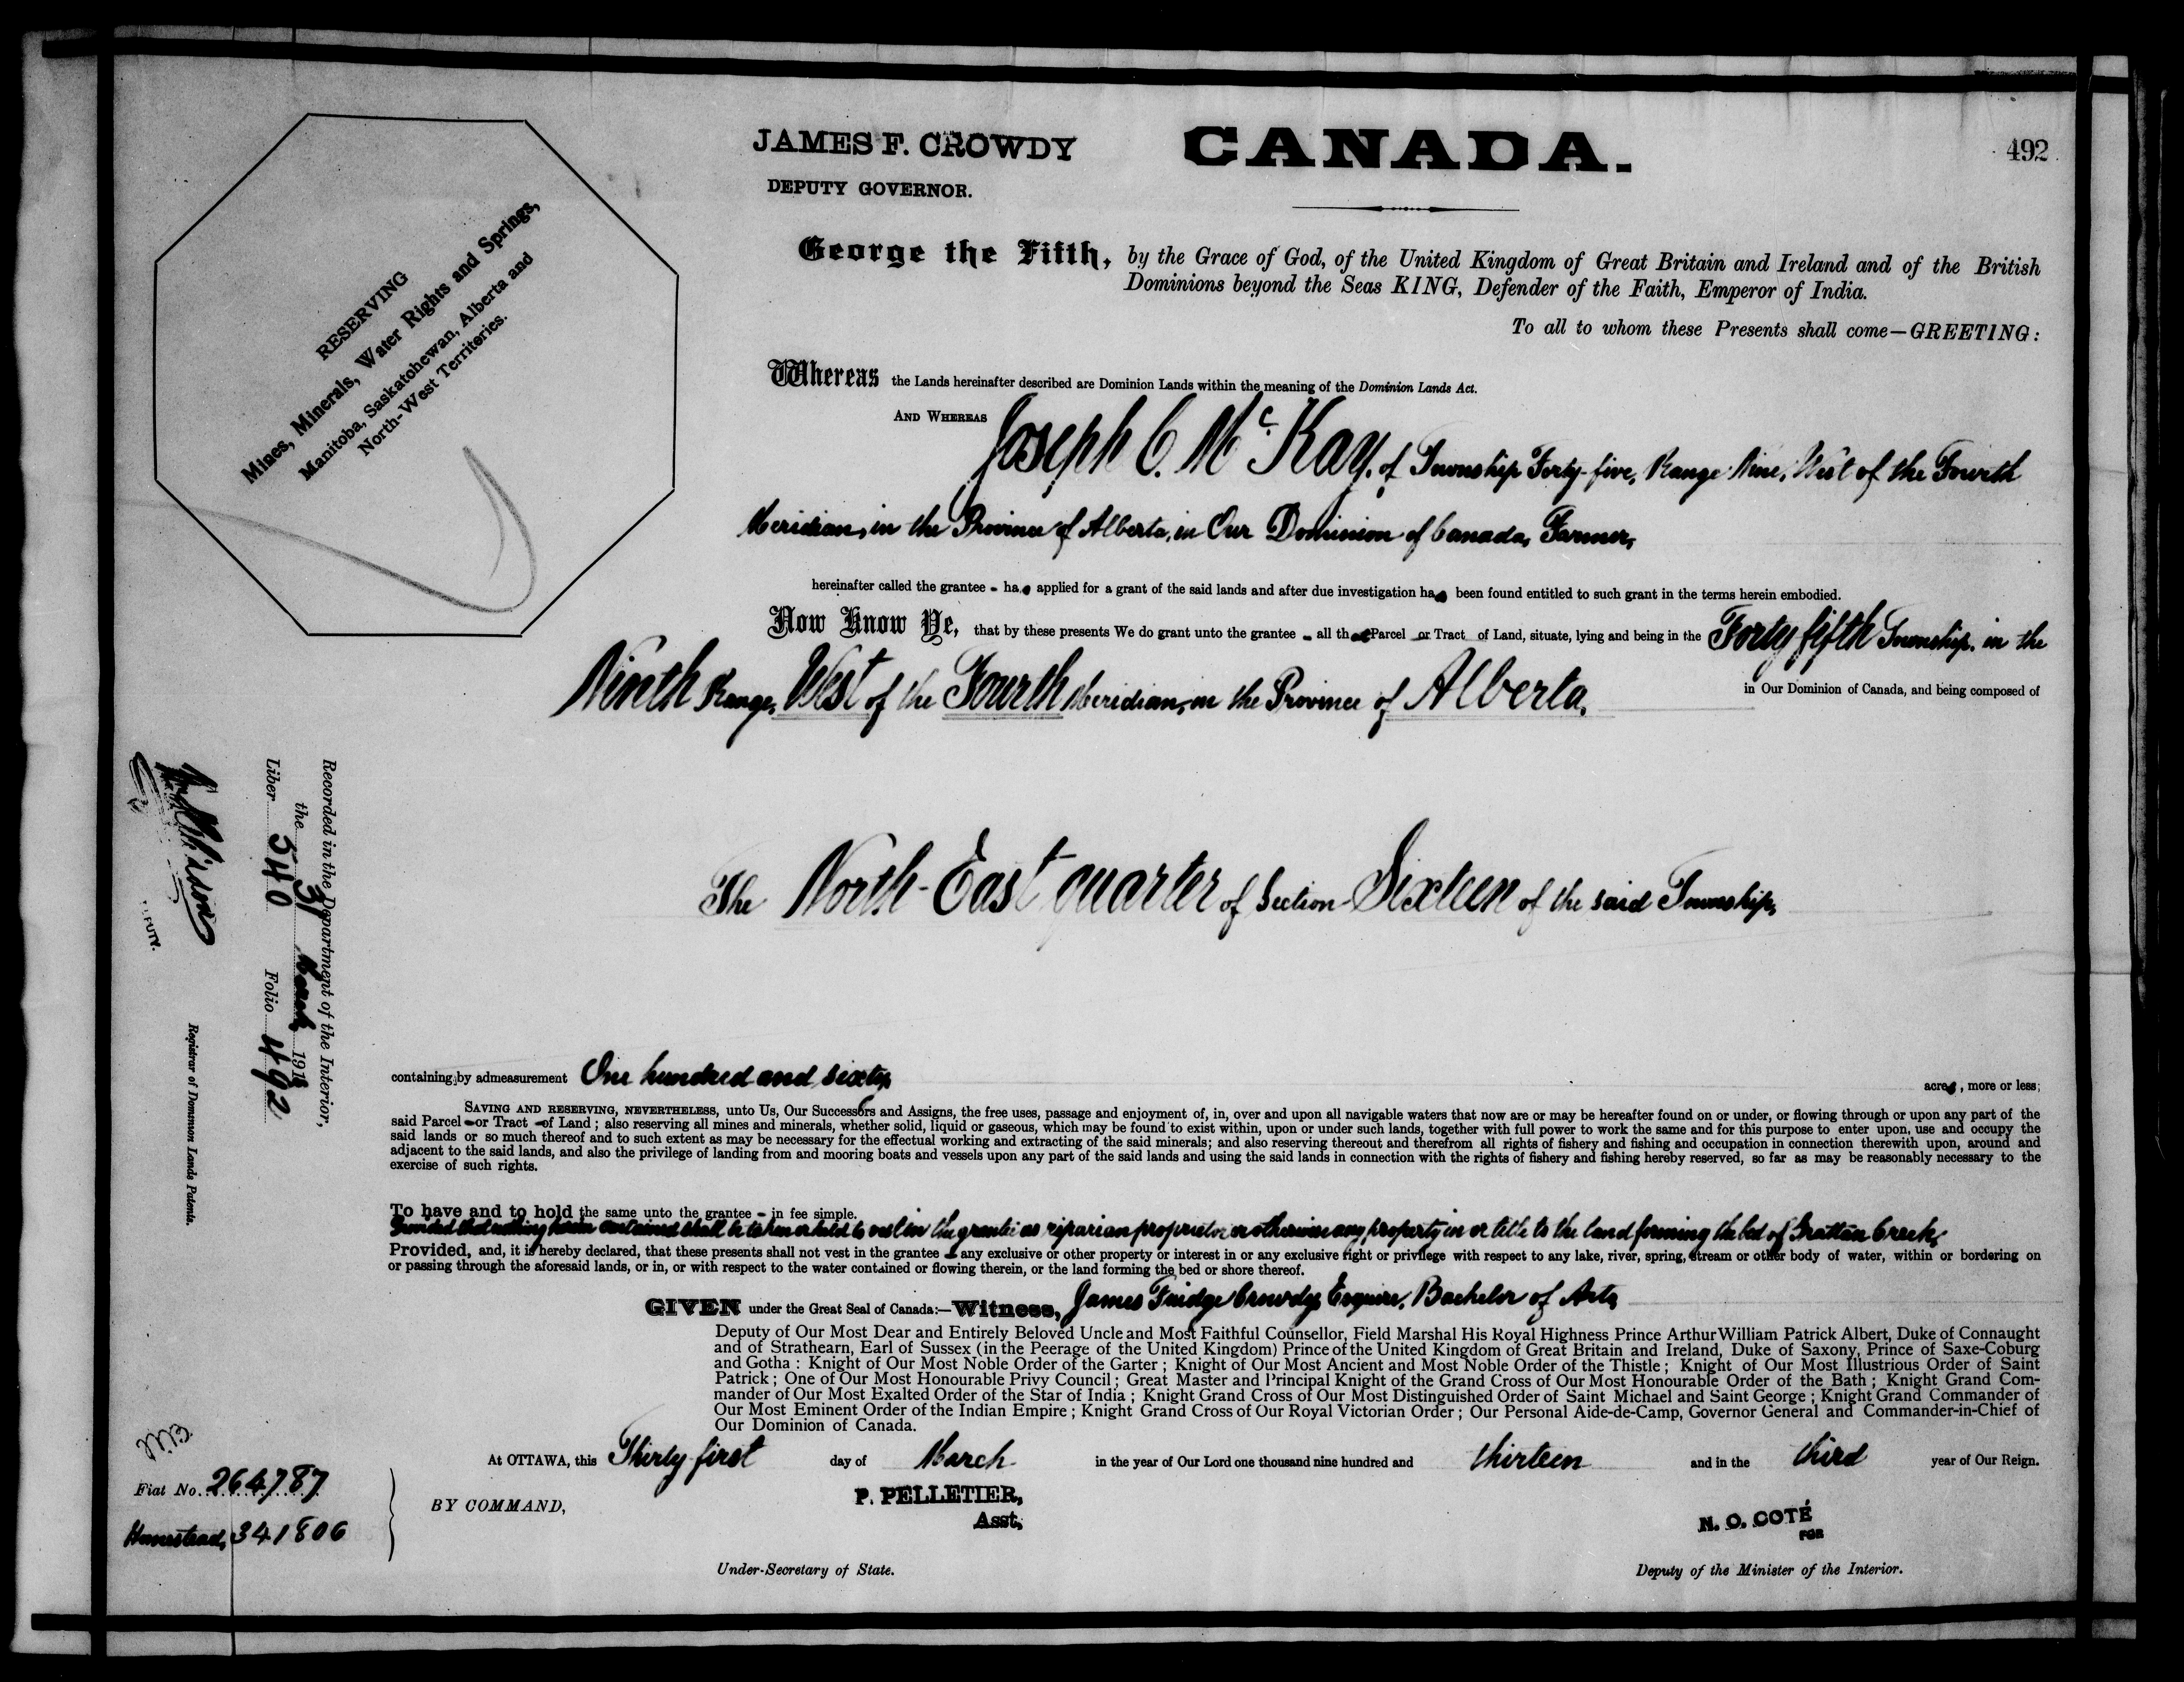 JAMES F. CROWDY
DEPUTY GOVERNOR.
CANADA.
492
RESERVING
Mines, Minerals, Water Rights and Springs,
Manitoba, Saskatchewan, Alberta and
North-West Territories.
George the Fifth, by the Grace of God, of the United Kingdom of Great Britain and Ireland and of the British
Dominions beyond the Seas KING, Defender of the Faith, Emperor of India.
To all to whom these Presents shall come—GREETING:
Whereas the Lands hereinafter described are Dominion Lands within the meaning of the Dominion Lands Act.
AND WHEREAS Joseph C. McKay, of Township Forty-five, Range Nine, West of the Fourth
Meridian, in the Province of Alberta, in Our Dominion of Canada, Farmer,
hereinafter called the grantee - has applied for a grant of the said lands and after due investigation has been found entitled to such grant in the terms herein embodied.
Now Know Ye, that by these presents We do grant unto the grantee - all that Parcel or Tract of Land, situate, lying and being in the Forty fifth Township, in the
Ninth Range, West of the Fourth Meridian, in the Province of Alberta, in Our Dominion of Canada, and being composed of
The North-East quarter of Section Sixteen of the said Township,
containing by admeasurement One hundred and sixty acres, more or less;
SAVING AND RESERVING, NEVERTHELESS, unto Us, Our Successors and Assigns, the free uses, passage and enjoyment of, in, over and upon all navigable waters that now are or may be hereafter found on or under, or flowing through or upon any part of the
said Parcel - or Tract - of Land; also reserving all mines and minerals, whether solid, liquid or gaseous, which may be found to exist within, upon or under such lands, together with full power to work the same and for this purpose to enter upon, use and occupy the
said lands or so much thereof and to such extent as may be necessary for the effectual working and extracting of the said minerals; and also reserving thereout and therefrom all rights of fishery and fishing and occupation in connection therewith upon, around and
adjacent to the said lands, and also the privilege of landing from and mooring boats and vessels upon any part of the said lands and using the said lands in connection with the rights of fishery and fishing hereby reserved, so far as may be reasonably necessary to the
exercise of such rights.
To have and to hold the same unto the grantee - in fee simple.
Provided that nothing herein contained shall be taken or held to vest in the grantee as riparian proprietor or otherwise any property in or title to the land forming the bed of Grattan Creek,
Provided, and, it is hereby declared, that these presents shall not vest in the grantee - any exclusive or other property or interest in or any exclusive right or privilege with respect to any lake, river, spring, stream or other body of water, within or bordering on
or passing through the aforesaid lands, or in, or with respect to the water contained or flowing therein, or the land forming the bed or shore thereof.
GIVEN under the Great Seal of Canada:—Witness, James Fuidge Crowdy, Esquire, Bachelor of Arts
Deputy of Our Most Dear and Entirely Beloved Uncle and Most Faithful Counsellor, Field Marshal His Royal Highness Prince Arthur William Patrick Albert, Duke of Connaught
and of Strathearn, Earl of Sussex (in the Peerage of the United Kingdom) Prince of the United Kingdom of Great Britain and Ireland, Duke of Saxony, Prince of Saxe-Coburg
and Gotha: Knight of Our Most Noble Order of the Garter; Knight of Our Most Ancient and Most Noble Order of the Thistle; Knight of Our Most Illustrious Order of Saint
Patrick; One of Our Most Honourable Privy Council; Great Master and Principal Knight of the Grand Cross of Our Most Honourable Order of the Bath; Knight Grand Com-
mander of Our Most Exalted Order of the Star of India; Knight Grand Cross of Our Most Distinguished Order of Saint Michael and Saint George; Knight Grand Commander of
Our Most Eminent Order of the Indian Empire; Knight Grand Cross of Our Royal Victorian Order; Our Personal Aide-de-Camp, Governor General and Commander-in-Chief of
Our Dominion of Canada.
At OTTAWA, this Thirty-first day of March in the year of Our Lord one thousand nine hundred and thirteen and in the third year of Our Reign.
BY COMMAND,
P. PELLETIER,
Asst,
Under-Secretary of State.
N. O. COTÉ
FOR
Deputy of the Minister of the Interior.
Recorded in the Department of the Interior,
the 31 March 1913
Liber 540 Folio 492
DEPUTY.
Registrar of Dominion Lands Patents.
Fiat No. 264787
Homestead, 341806